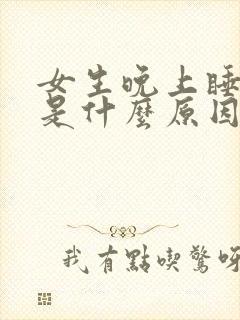 女生晚上睡
是什麼原因
我有點喫驚呀